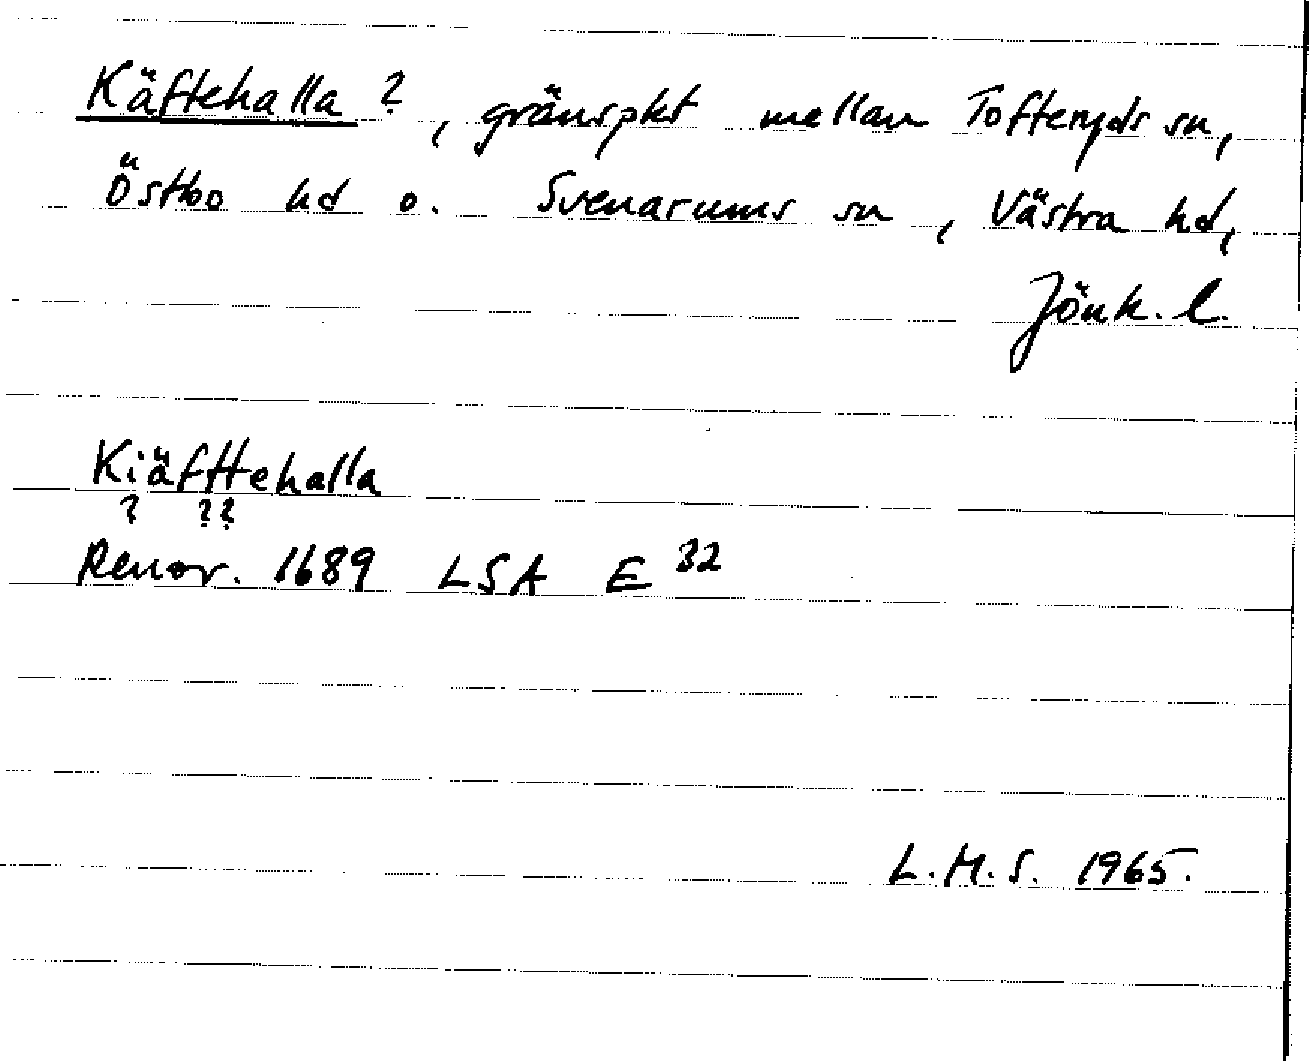 Käftehalla ?, gränspkt mellan Tofteryds sn,
Östbo hd o. Svenarums sn, Västra hd,
Jönk. l.
Kiäfftehalla
? ??
Renov. 1689 LSA E 32
L.M.S. 1965.